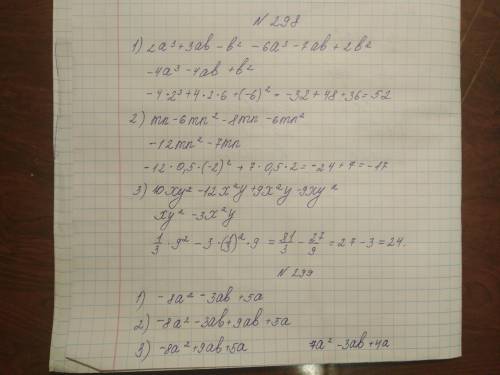 N 298
1) 2a³+3ab - b² - 6a³ - 7ab + 2b²
-4a³ - 4ab + b²
-4·2³+4·2·6+(-6)² = -32+48+36=52
2) mn-6mn²-8mn-6mn²
-12mn²-7mn
-12·0,5·(-2)²+7·0,5·2=-24+7=-17
3) 10xy²-12x²y+9x²y-9xy²
xy²-3x²y
1/3·9²-3·(1/3)²·9 = 81/3 - 27/9 = 27-3=24.
N 299
1) -8a²-3ab+5a
2) -8a²-3ab+9ab+5a
3) -8a²+9ab+5a 7a²-3ab+4a